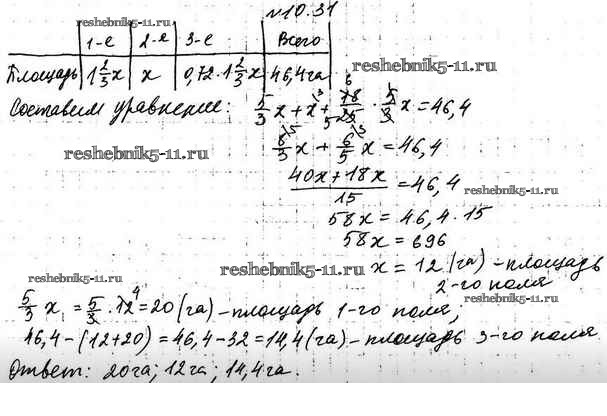 №10.31
1-е 2-е 3-е Всего
Площадь 1 2/3 x x 0,72·1 2/3 x 46,4 га
Составим уравнение: 5/3 x + x + 18/25 · 5/3 x = 46,4
8/3 x + 6/5 x = 46,4
(40x + 18x)/15 = 46,4
58x = 46,4 · 15
58x = 696
x = 12 (га) – площадь
2-го поля
5/3 x = 5/3 · 12 = 20 (га) – площадь 1-го поля;
46,4 – (12+20) = 46,4 – 32 = 14,4 (га) – площадь 3-го поля.
Ответ: 20га; 12га; 14,4га.
reshebnik5-11.ru
reshebnik5-11.ru
reshebnik5-11.ru
reshebnik5-11.ru
reshebnik5-11.ru
reshebnik5-11.ru
reshebnik5-11.ru
reshebnik5-11.ru